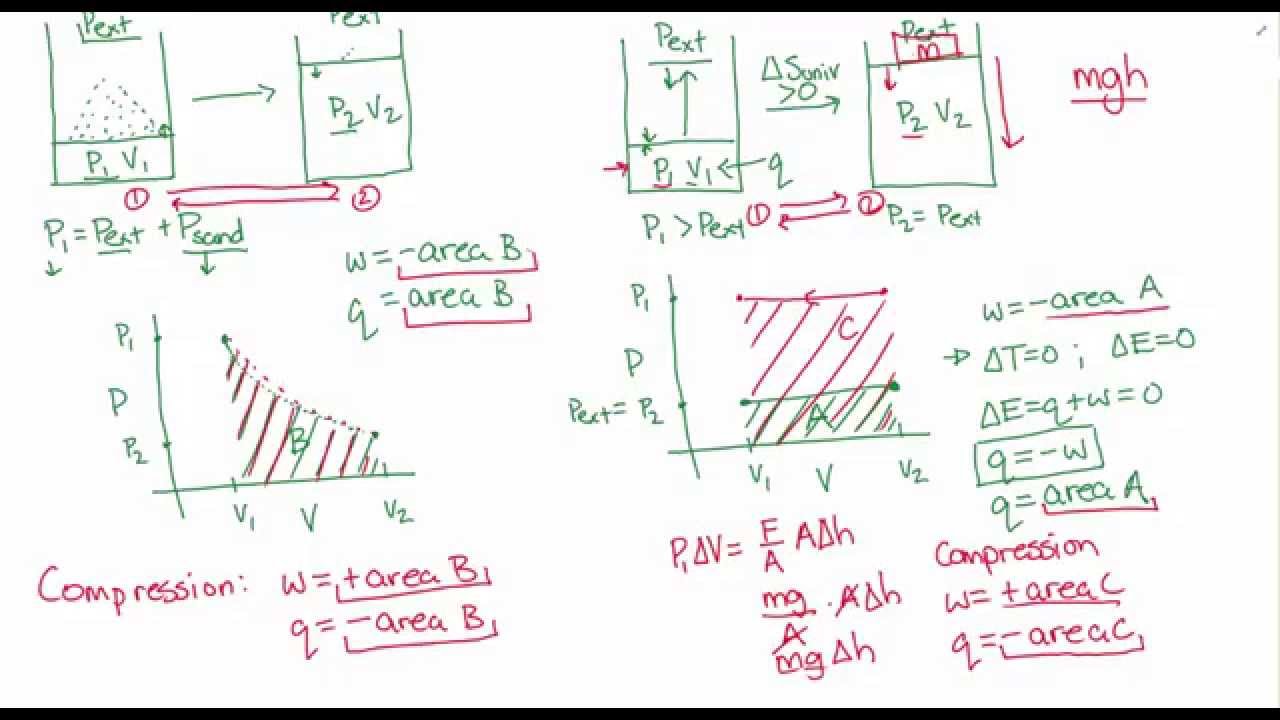 Pext
Pext
P₁ V₁
P₂ V₂
① ②
P₁ = Pext + Psand
w = -area B
q = area B
P₁
P
P₂
B
V₁ V V₂
Compression: w = +area B
q = -area B
Pext
ΔSuniv
>0
Pext
m
mgh
P₁ V₁ ← q
P₂ V₂
P₁ > Pext ① ② P₂ = Pext
P₁
P
Pext = P₂
C
A
V₁ V V₂
w = -area A
→ ΔT=0 ; ΔE=0
ΔE=q+w=0
q=-w
q= area A
P₁ΔV = F/A AΔh
mg/A · AΔh
mgΔh
Compression
w= +area C
q= -area C